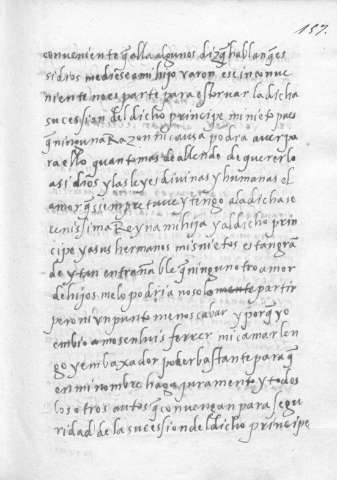 157.
conveniente q̃ alla algunos dizq̃ hablan q̃ es
si dios me diese a mi hijo varon ese inconve
niente no es parte para estorvar la dicha
sucession del dicho principe mi nieto pues
q̃ ninguna Razon ni causa podra aver pa
ra ello quanto mas de allende de quererlo
asi dios y las leyes divinas y humanas el
amor q̃ sempre tuve y tengo a la dicha se
renissima Reyna mi hija y al dicho prin
cipe y a sus hermanos mis nietos es tan grã
de y tan entrañable q̃ ningun otro amor
de hijos me lo podria no solo partir
pero ni un punto menoscabar y porq̃ yo
embio a mosen luis ferrer mi camarlen
go y embaxador poder bastante para q̃
en mi nombre haga juramento y todos
los otros autos q̃ convengan para segu
ridad de la sucession del dicho principe